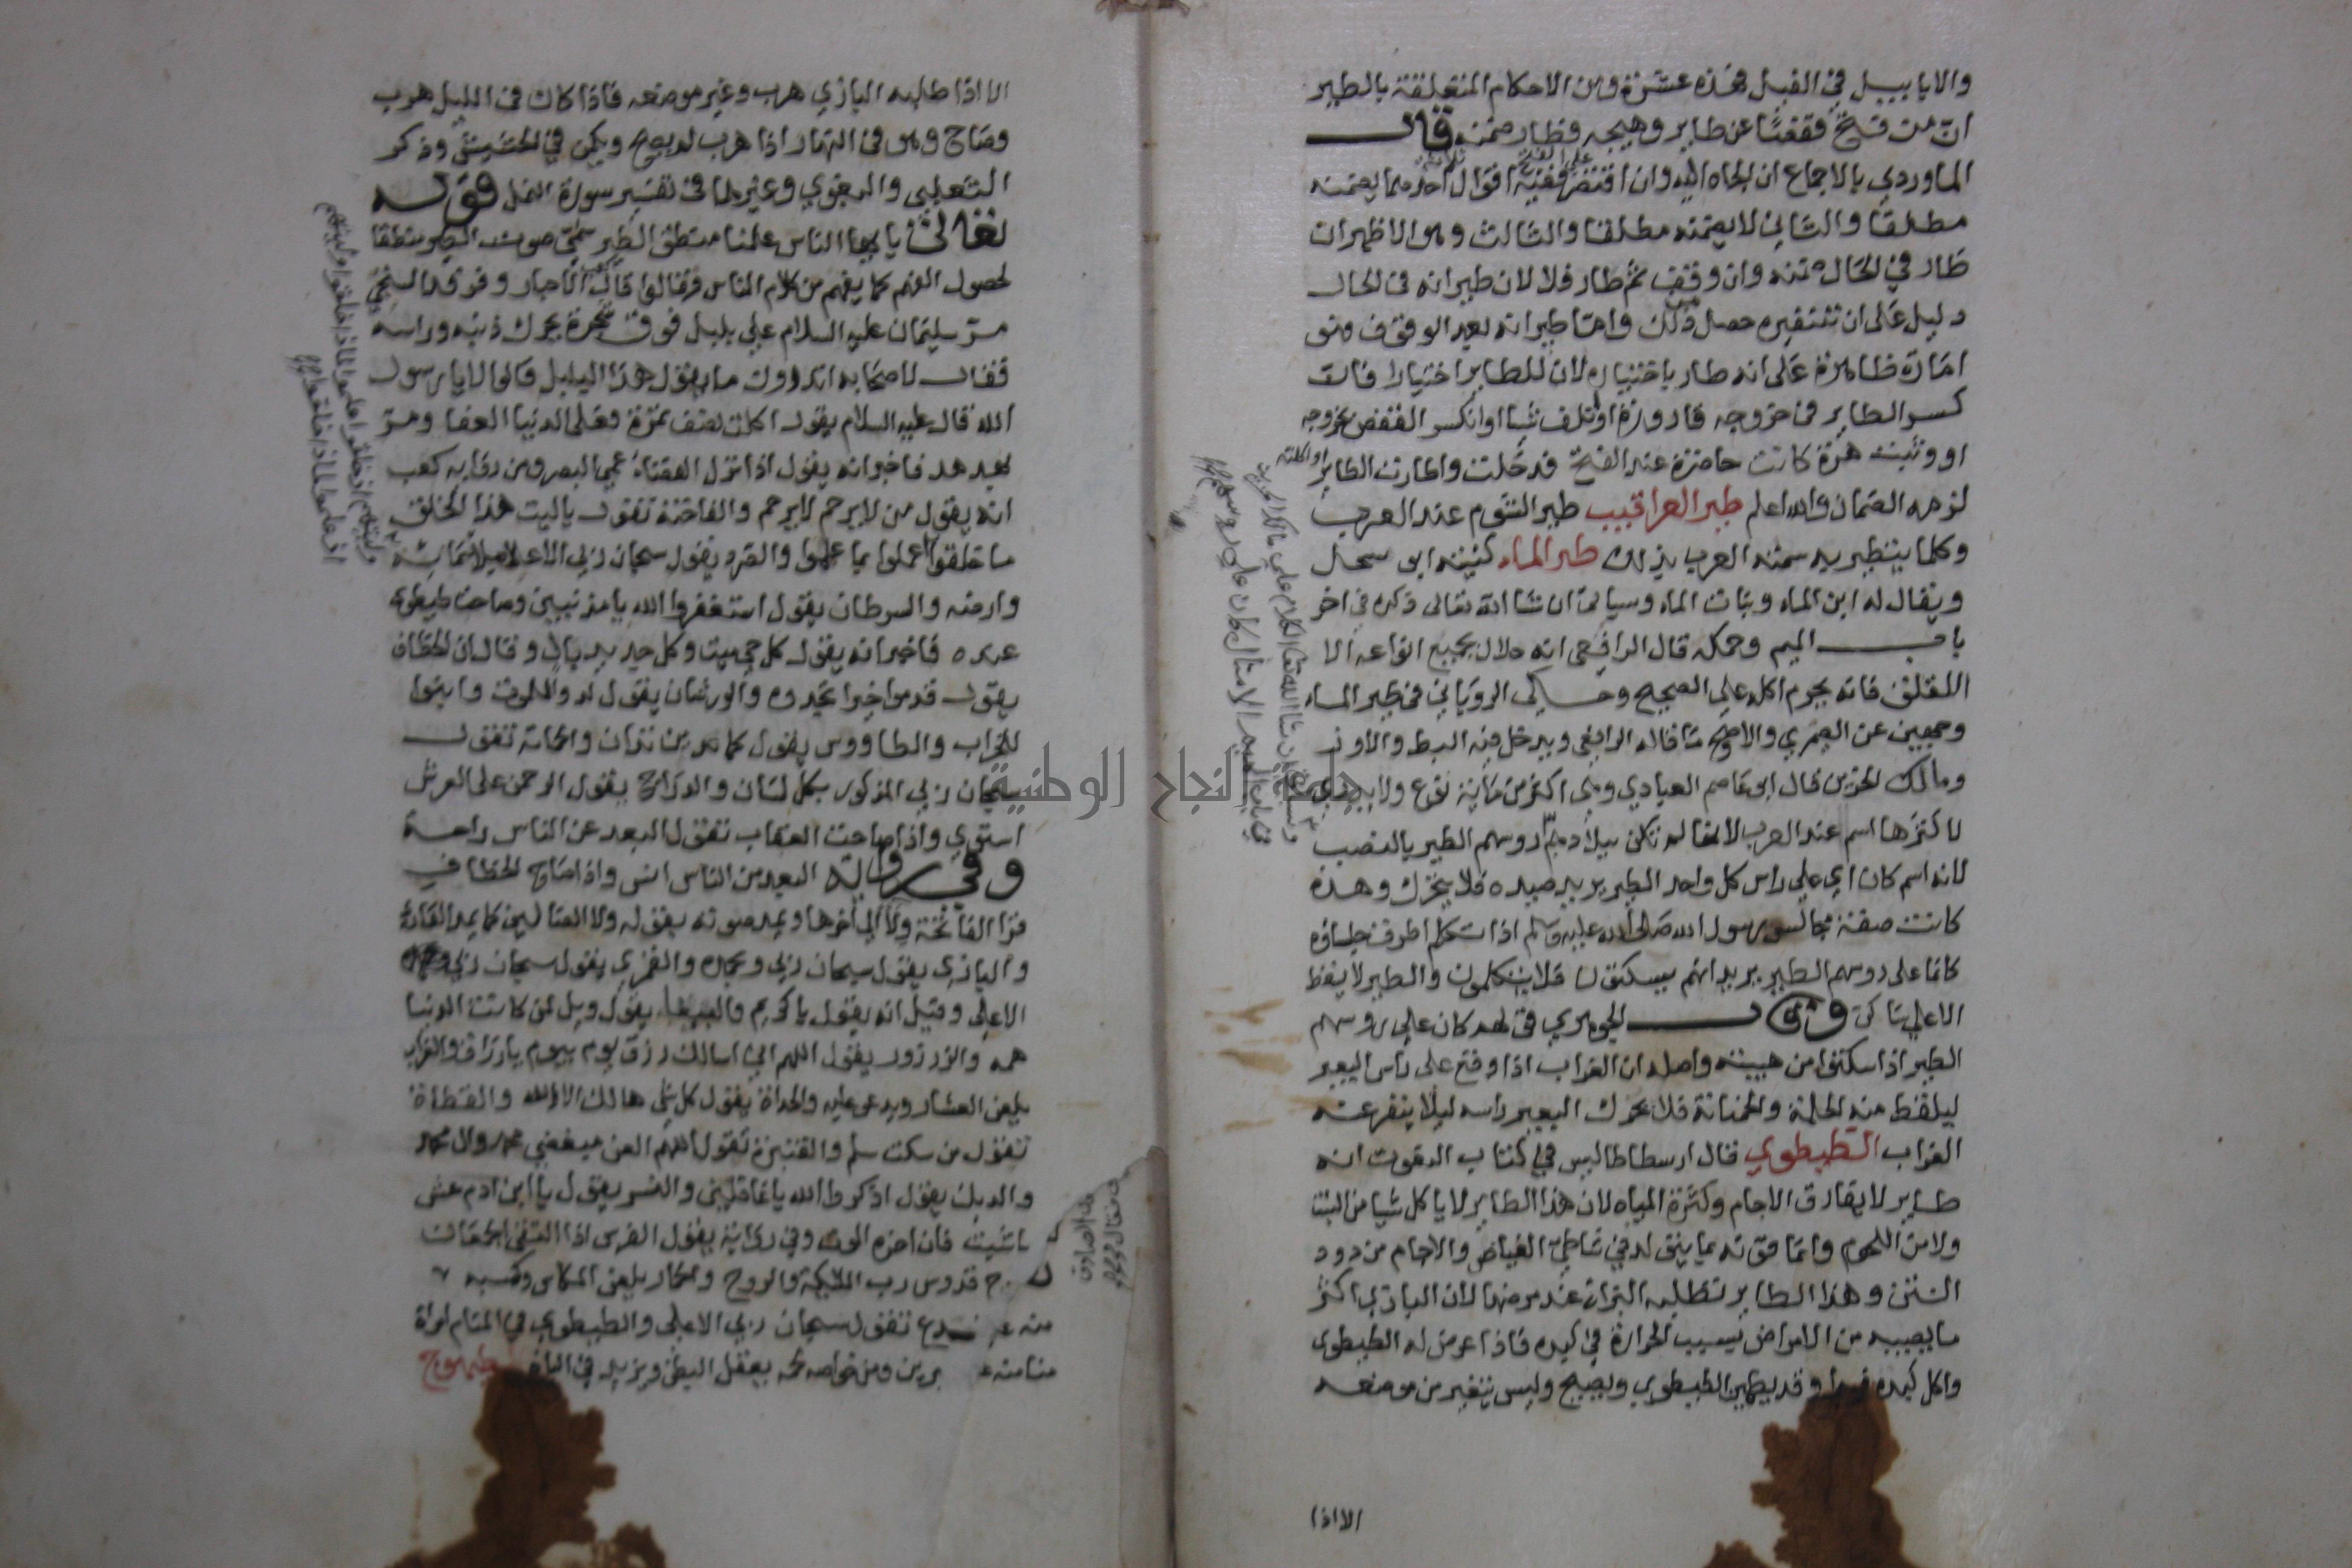 والابابيل في الفيل فهذه عشرة ومن الاحكام المتعلقة بالطير
ان من فتح قفصا عن طاير وهيجه فطار ضمنه قال
الماوردي بالاجماع انه الجاه اليه وان اقتصر على الفتح ففيه ثلاثة اقوال احدها يضمنه
مطلقا والثاني لا يضمنه مطلقا والثالث وهو الاظهر ان
طار في الحال ضمنه وان وقف ثم طار فلا لان طيرانه في الحال
دليل على ان تنفيره حصل ذلك واما طيرانه بعد الوقوف فهو
امارة ظاهرة على انه طار باختياره لان للطاير اختيارا فان
كسر الطاير في خروجه قارورة او تلف شيا او انكسر القفص بخروجه
او وثبت هرة كانت حاضرة عند الفتح فدخلت واطارت الطاير او اكلته
لزمه الضمان والله اعلم طير العراقيب طير الشوم عند العرب
وكلما يتطير به سمته العرب بذلك طير الماء كنيته ابو سحل
ويقال له ابن الماء وبنات الماء وسياتي ان شا الله تعالى ذكره في اخر
باب الميم وحكمه قال الرافعي انه حلال بجميع انواعه الا
اللقلق فانه يحرم اكله على الصحيح وحكى الروياني في طير الماء
وجهين عن الصيمري والاصح ما قاله الرافعي ويدخل فيه البط والاوز
ومالك الحزين قال ابو عاصم العبادي وهي اكثر من مائة نوع ولا يدرى
لاكثرها اسم عند العرب لانها لم تكن ببلادهم روسهم الطير بالنصب
لانه اسم كان اي على راس كل واحد الطير يريد صيده فلا يتحرك وهذه
كانت صفة مجالس رسول الله صلى الله عليه وسلم اذا تكلم اطرق جلساؤه
كانما على روسهم الطير يريد انهم يسكنون فلا يتكلمون والطير لا يقط
الا على ساكن وقال الجوهري في قولهم كان على روسهم
الطير اذا سكنوا من هيبته واصله ان الغراب اذا وقع على راس البعير
ليلقط منه الحلمة والحمنانة فلا يحرك البعير راسه ليلا ينفر عنه
الغراب الطيطوي قال ارسطاطاليس في كتاب النعوت انه
طاير لا يفارق الاجام وكثرة المياه لان هذا الطاير لا ياكل شيا من النبت
ولا من اللحوم وانما قوته مما يتولد في شاطي الغياض والاجام من دود
النتن وهذا الطاير تطلبه البزاة عند مرضها لان البازي اكثر
ما يصيبه من الامراض بسبب الحرارة في كبده فاذا عرض له الطيطوي
واكل كبده فيبرا وقد يطمين الطيطوي ويصيح وليس يتغير من موضعه
الا اذا
الا اذا طلبه البازي هرب وغير موضعه فاذا كان في الليل هرب
وصاح وهو في النهار اذا هرب لم يصح ويكمن في الحشيش وذكر
الثعلبي والبغوي وغيرهما في تفسير سورة النمل قوله
تعالى يا ايها الناس علمنا منطق الطير سمى صوت الطير منطقا
لحصول الفهم كما يفهم من كلام الناس قال كعب الاحبار وفرقد السبخي
مر سليمان عليه السلام على بلبل فوق شجرة يحرك ذنبه وراسه
فقال لاصحابه اتدرون ما يقول هذا البلبل قالوا لا يا رسول
الله قال عليه السلام يقول اكلت نصف تمرة وعلى الدنيا العفا ومر
بهدهد فاخبر انه يقول اذا نزل القضاء عمي البصر وفي رواية كعب
انه يقول من لا يرحم لا يرحم والفاختة تقول ياليت هذا الخلق
ما خلقوا اعملوا بما علموا والصرد يقول سبحان ربي الاعلى ملا سمائه
وارضه والسرطان يقول استغفروا الله يا مذنبين وصاحت طيطوي
عنده فاخبر انه يقول كل حي ميت وكل جديد بال وقال ان الخطاف
يقول قدموا خيرا تجدوه والورشان يقول لدوا للموت وابنوا
للخراب والطاووس يقول كما تدين تدان والحمامة تقول
سبحان ربي المذكور بكل لسان والدراج يقول الرحمن على العرش
استوي واذا صاحت العقاب تقول البعد عن الناس راحة
وفي رواية البعد من الناس انس واذا صاح الخطاف
قرا الفاتحة الى اخرها ويمد صوته بقوله ولا الضالين كما يمد القارئ
والبازي يقول سبحان ربي وبحمده والقمري يقول سبحان ربي
الاعلى وقيل انه يقول يا كريم والببغاء يقول ويل لمن كانت الدنيا
همه والزرزور يقول اللهم اني اسالك رزق يوم بيوم يا رزاق والغراب
يلعن العشار ويدعو عليه والحداة يقول كل شي هالك الا الله والقطاة
تقول من سكت سلم والقنبرة تقول اللهم العن مبغضي محمد وال محمد
والديك يقول اذكروا الله يا غافلين والنسر يقول يا ابن ادم عش
ما شيت فان اخره الموت وفي رواية يقول الفرس اذا التقى الجمعان
قدوس رب الملائكة والروح والحمار يلعن المكاس وكسبه
تقول سبحان ربي الاعلى والطيطوي في المنام امراة
ومن خواصه لحمه يعقل البطن ويزيد في الباه طيهوج
جامعة النجاح الوطنية